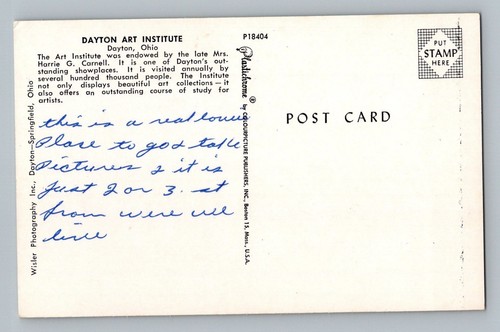 DAYTON ART INSTITUTE
Dayton, Ohio
The Art Institute was endowed by the late Mrs.
Harrie G. Carnell. It is one of Dayton's out-
standing showplaces. It is visited annually by
several hundred thousand people. The Institute
not only displays beautiful art collections — it
also offers an outstanding course of study for
artists.
this is a real love
Place to go & take
Pictures & it is
Just 2 or 3. st
from were we
live
Wisler Photography Inc., Dayton—Springfield, Ohio
P18404
Plastichrome ® by COLOURPICTURE PUBLISHERS, INC., Boston 15, Mass., U.S.A.
POST CARD
PUT
STAMP
HERE